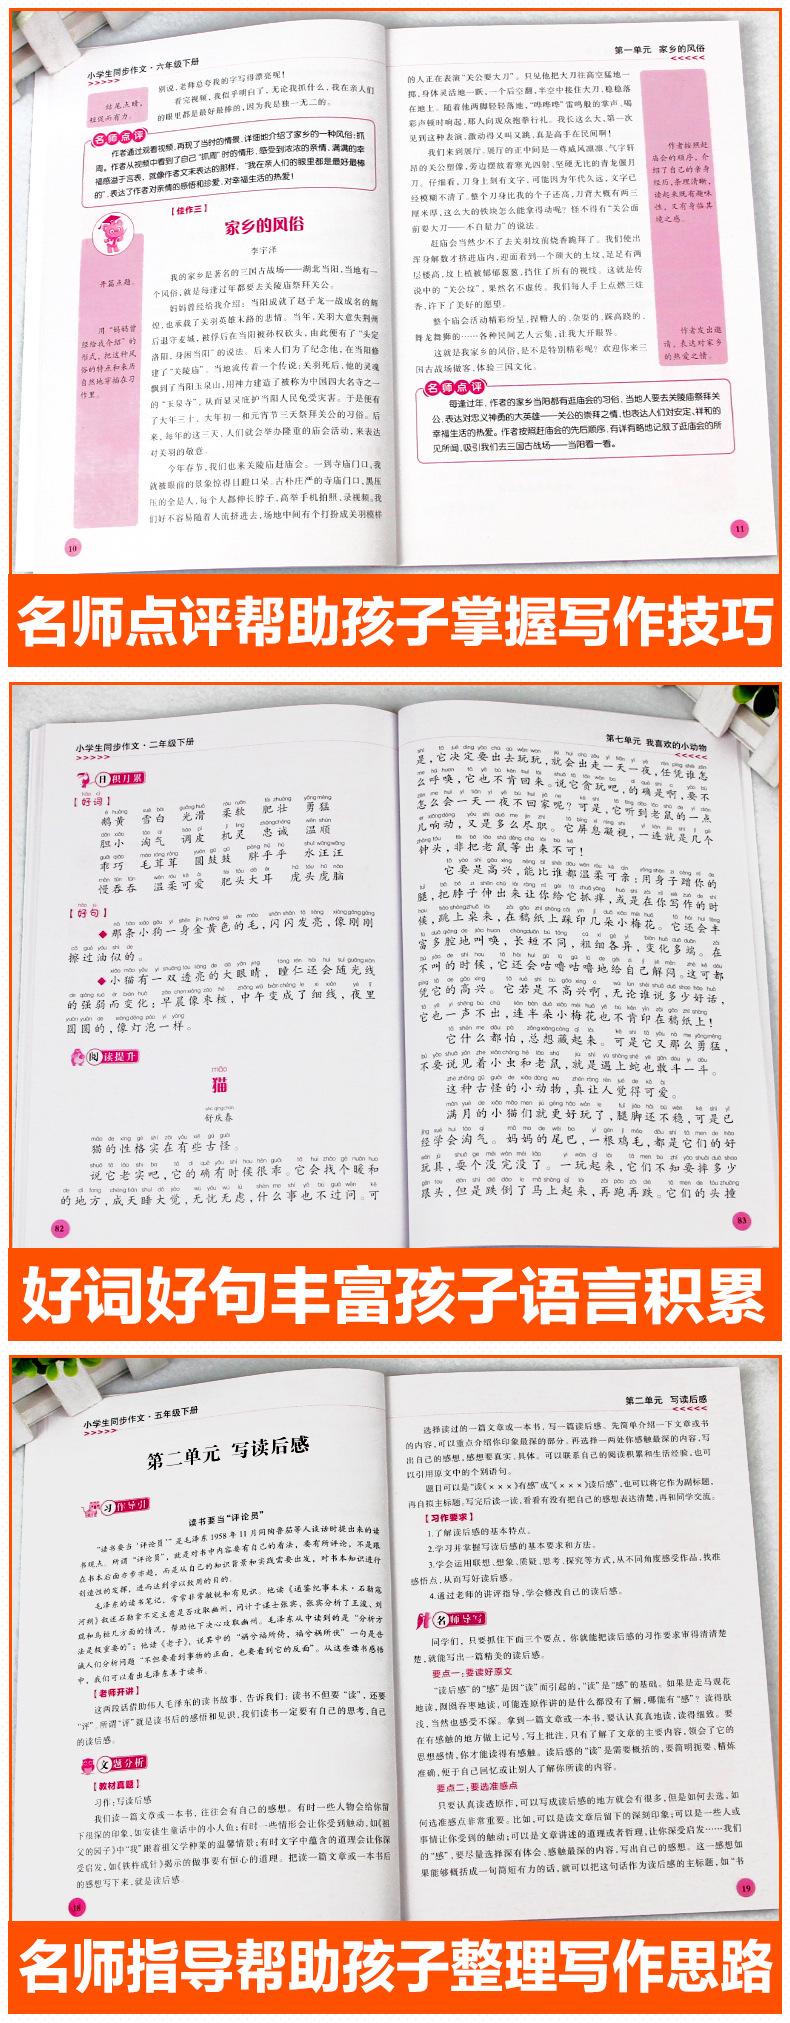 小学生同步作文·六年级下册
>>>>>
别说，老师总夸我的字写得漂亮呢！
看完视频，我似乎明白了，无论我抓什么，我在亲人们
的眼里都是最好最棒的，因为我是独一无二的。
结尾点睛，
短促而有力。
名师点评
作者通过观看视频，再现了当时的情景，详细地介绍了家乡的一种风俗：抓
周。作者从视频中看到了自己“抓周”时的情形，感受到浓浓的亲情，满满的幸
福感溢于言表，就像作者文末表达的那样，“我在亲人们的眼里都是最好最棒
的”，表达了作者对亲情的感悟和珍爱，对幸福生活的热爱！
【佳作三】
家乡的风俗
李宇泽
我的家乡是著名的三国古战场——湖北当阳，当地有一
个风俗，就是每逢过年都要去关陵庙祭拜关公。
开篇点题。
妈妈曾经给我介绍：当阳成就了赵子龙一战成名的辉
煌，也承载了关羽英雄末路的悲情。当年，关羽大意失荆州
后退守麦城，被俘后在当阳被孙权砍头，由此便有了“头定
洛阳，身困当阳”的说法。后来人们为了纪念他，在当阳修
建了“关陵庙”。当地流传着一个传说：关羽死后，他的灵魂
飘到了当阳玉泉山，用神力建造了被称为中国四大名寺之一
的“玉泉寺”，从而显灵庇护当阳人民免受灾害。于是便有
了大年三十、大年初一和元宵节三天祭拜关公的习俗。后
来，每年的这三天，人们就会举办隆重的庙会活动，来表达
对关羽的敬意。
用“妈妈曾
经给我介绍”的
形式，把这种风
俗的特点和来历
自然地穿插在习
作里。
今年春节，我们也来关陵庙赶庙会。一到寺庙门口，我
就被眼前的景象惊得目瞪口呆。古朴庄严的寺庙门口，黑压
压的全是人，每个人都伸长脖子，高举手机拍照、录视频。我
们好不容易随着人流挤进去，场地中间有个打扮成关羽模样
10
第一单元 家乡的风俗
<<<<<
的人正在表演“关公耍大刀”。只见他把大刀往高空猛地一
掷，身体灵活地一跃，一个后空翻，半空中接住大刀，稳稳落
在地上。随着他两脚轻轻落地，“哗哗哗”雷鸣般的掌声、喝
彩声顿时响起，那人向观众抱拳行礼。我长这么大，第一次
见到这种表演，激动得又叫又跳，真是高手在民间啊！
我们来到展厅。展厅的正中间是一尊威风凛凛、气宇轩
昂的关公塑像，旁边摆放着寒光四射、坚硬无比的青龙偃月
刀。仔细看，刀身上刻有文字，可能因为年代久远，文字已
经模糊不清了。整个刀身比我的个子还高，刀背大概有两三
厘米厚，这么大的铁块怎么能拿得动呢？怪不得有“关公面
前耍大刀——不自量力”的说法。
赶庙会当然少不了去关羽坟前烧香跪拜了。我们使出
浑身解数才挤进庙内，迎面看到一个硕大的土坟，足足有两
层楼高，坟上植被郁郁葱葱，挡住了所有的视线。这就是传
说中的“关公坟”，果然名不虚传。我们每人手上点燃三炷
香，许下了美好的愿望。
整个庙会活动精彩纷呈，捏糖人的、杂耍的、踩高跷的、
舞龙舞狮的……各种民间艺人云集，让我大开眼界。
这就是我家乡的风俗，是不是特别精彩呢？欢迎你来三
国古战场做客，体验三国文化。
作者按照赶
庙会的顺序，介
绍了自己的亲身
经历，条理清晰，
读起来既有趣味
性，又有身临其
境之感。
作者发出邀
请，表达对家乡
的热爱之情。
名师点评
每逢过年，作者的家乡当阳都有逛庙会的习俗，当地人要去关陵庙祭拜关
公，表达对忠义神勇的大英雄——关公的崇拜之情，也表达人们对安定、祥和的
幸福生活的热爱。作者按照赶庙会的先后顺序，有详有略地记叙了逛庙会的所
见所闻，吸引我们去三国古战场——当阳看一看。
11
名师点评帮助孩子掌握写作技巧
小学生同步作文·二年级下册
>>>>>
日积月累
【好词】
鹅黄 雪白 光滑 柔软 肥壮 勇猛
胆小 淘气 调皮 机灵 忠诚 温顺
乖巧 毛茸茸 圆鼓鼓 胖乎乎 水汪汪
慢吞吞 温柔可爱 肥头大耳 虎头虎脑
【好句】
◆那条小狗一身金黄色的毛，闪闪发亮，像刚刚
擦过油似的。
◆小猫有一双透亮的大眼睛，瞳仁还会随光线
的强弱而变化：早晨像枣核，中午变成了细线，夜里
圆圆的，像灯泡一样。
阅读提升
māo
猫
舒庆春
猫的性格实在有些古怪。
说它老实吧，它的确有时候很乖。它会找个暖和
的地方，成天睡大觉，无忧无虑，什么事也不过问。可
82
第七单元 我喜欢的小动物
<<<<<
是，它决定要出去玩玩，就会出走一天一夜，任凭谁怎
么呼唤，它也不肯回来。说它贪玩吧，的确是啊，要不
怎么会一天一夜不回家呢？可是，它听到老鼠的一点
儿响动，又是多么尽职。它屏息凝视，一连就是几个
钟头，非把老鼠等出来不可！
它要是高兴，能比谁都温柔可亲：用身子蹭你的
腿，把脖子伸出来让你给它抓痒，或是在你写作的时
候，跳上桌来，在稿纸上踩印几朵小梅花。它还会丰
富多腔地叫唤，长短不同，粗细各异，变化多端。在
不叫的时候，它还会咕噜咕噜地给自己解闷。这可都
凭它的高兴。它若是不高兴啊，无论谁说多少好话，
它也一声不出，连半朵小梅花也不肯印在稿纸上！
它什么都怕，总想藏起来。可是它又那么勇猛，
不要说见着小虫和老鼠，就是遇上蛇也敢斗一斗。
这种古怪的小动物，真让人觉得可爱。
满月的小猫们就更好玩了，腿脚还不稳，可是已
经学会淘气。妈妈的尾巴，一根鸡毛，都是它们的好
玩具，耍个没完没了。一玩起来，它们不知要摔多少
跟头，但是跌倒了马上起来，再跑再跌。它们的头撞
83
好词好句丰富孩子语言积累
小学生同步作文·五年级下册
>>>>>
第二单元 写读后感
习作导引
读书要当“评论员”
“读书要当‘评论员’”是毛泽东1958年11月同陶鲁笳等人谈话时提出来的读
书观点。所谓“评论员”，就是对书中内容要有自己的看法，要有所评论，不是跟
在书本后面亦步亦趋，而是从自己的知识背景和实践需要出发，对书本知识进行
创造性的发挥，进而达到学以致用的目的。
毛泽东的读书笔记，常常非常敏锐和有见识。他读《通鉴纪事本末·石勒寇
河朔》叙述石勒拿不定主意是否攻取幽州，问计于谋士张宾，张宾分析了王浚、刘
琨和乌桓几方面的情况，帮助他下决心攻取幽州。毛泽东从中读到的是“分析方
法是极重要的”；他读《老子》，说书中的“祸兮福所倚，福兮祸所伏”一句是告
诫人们分析问题“不但要看到事物的正面，也要看到它的反面”。从这些读书感悟
中，我们可以看出毛泽东善于读书。
【老师开讲】
这两段话借助伟人毛泽东的读书故事，告诉我们：读书不但要“读”，还要
“评”。所谓“评”就是读书后的感悟和见识，我们读书一定要有自己的思考，自己
的读后感。
文题分析
【教材真题】
习作：写读后感
我们读一篇文章或一本书，往往会有自己的感想。有时一些人物会给你留
下很深的印象，如安徒生童话中的小人鱼；有时一些情形会让你受到触动，如《祖
父的园子》中“我”跟着祖父学种菜的温馨情景；有时文字中蕴含的道理会让你深
受启发，如《铁杵成针》揭示的做事要有恒心的道理。把读一篇文章或一本书后
的感想写下来，就是读后感。
18
第二单元 写读后感
<<<<<
选择读过的一篇文章或一本书，写一篇读后感。先简单介绍一下文章或书
的内容，可以重点介绍你印象最深的部分。再选择一两处你感触最深的内容，写
出自己的感想，感想要真实、具体。可以联系自己的阅读积累和生活经验，也可
以引用原文中的个别语句。
题目可以是“读《×××》有感”或“《×××》读后感”，也可以将它作为副标题，
再自拟主标题。写完后读一读，看看有没有把自己的感想表达清楚，再和同学交流。
【习作要求】
1.了解读后感的基本特点。
2.学习并掌握写读后感的基本要求和方法。
3.学会运用联想、想象、质疑、思考、探究等方式，从不同角度感受作品，找准
感悟点，从而写好读后感。
4.通过老师的讲评指导，学会修改自己的读后感。
名师导写
同学们，只要抓住下面三个要点，你就能把读后感的习作要求审得清清楚
楚，就能写出一篇精美的读后感。
要点一：要读好原文
“读后感”的“感”是因“读”而引起的，“读”是“感”的基础。如果是走马观花
地读，囫囵吞枣地读，可能连原作讲的是什么都没有了解，哪能有“感”？读得肤
浅，当然也感受不深。拿到一篇文章或一本书，要认认真真地读，读得细致。要
在有感触的地方做上记号，写上批注，只有了解了文章的主要内容，领会了它的
思想感情，你才能读得有感触。读后感的“读”是需要概括的，要简明扼要、精炼
准确，便于自己回忆或让别人了解你所读的内容。
要点二：要选准感点
只要认真读透原作，可以写成读后感的地方就会有很多，但是如何去选，如
何选准感点非常重要。比如，可以是读文章后留下的深刻印象；可以是一些人或
事情让你受到的触动；可以是文章讲述的道理或者哲理，让你深受启发……我们
的“感”，要尽量选择深有体会、感触最深的内容，写出自己的感想。这一感想如
果能够概括成一句简短有力的话，就可以把这句话作为读后感的主标题，如“书
19
名师指导帮助孩子整理写作思路